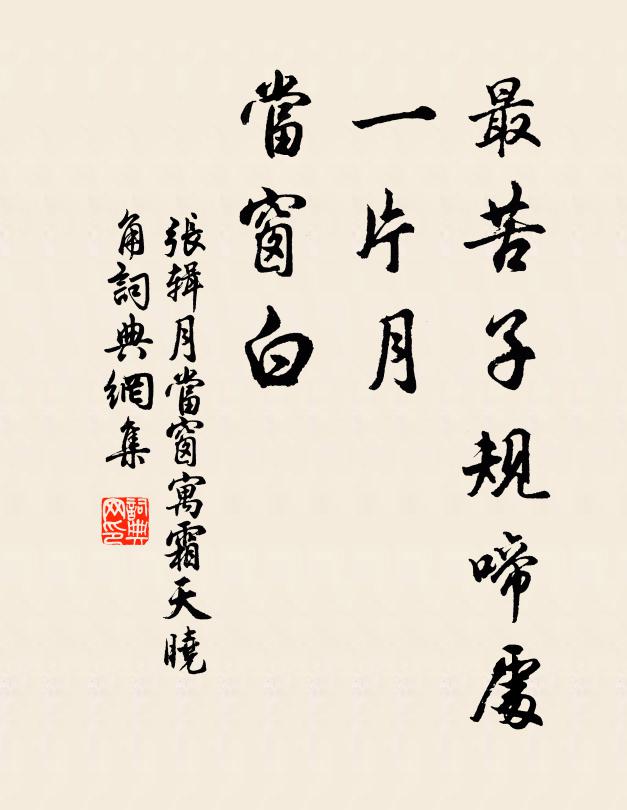 最苦子規啼處
一片月
當窗白
張輯月當窗寓霜天曉
角詞典網集
詞典网印